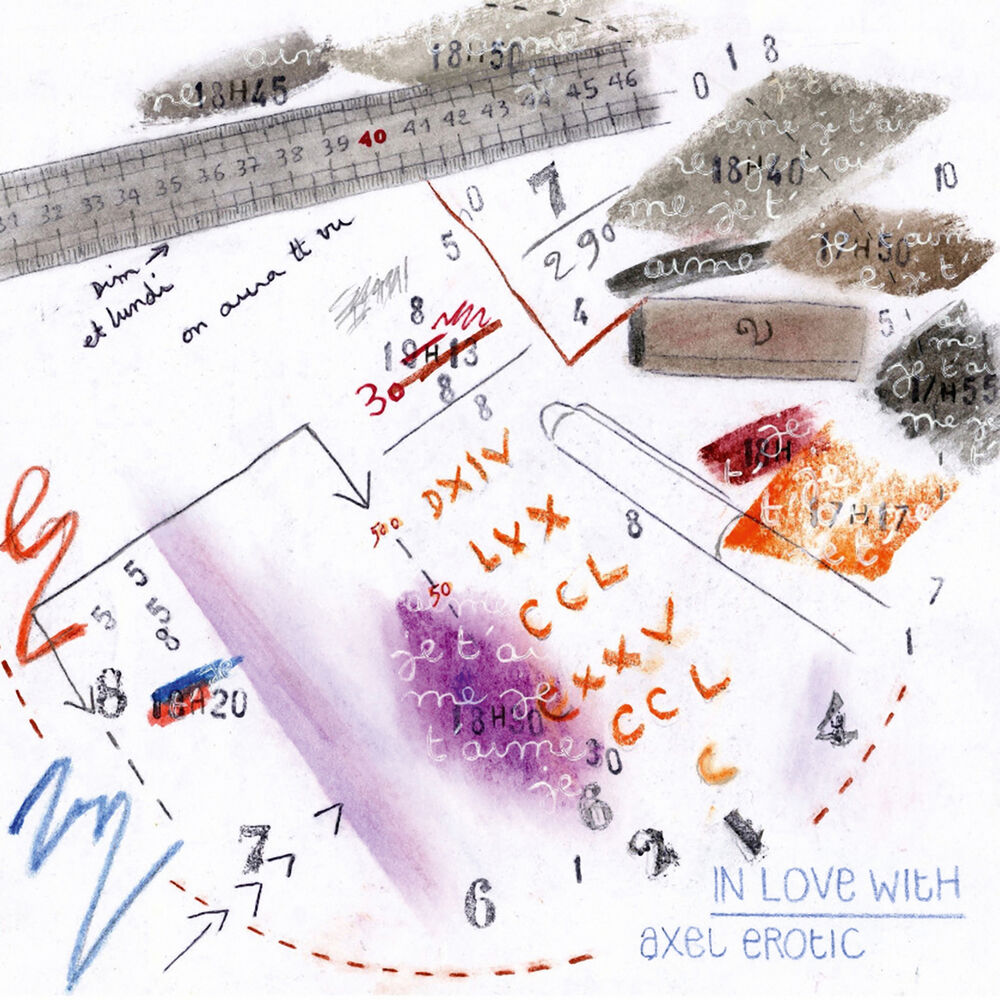 18H45
18H50
31 32 33 34 35 36 37 38 39 40 41 42 43 44 45 46
0 1 8
je t'ai
me je t'ai
18H40
me je t'
10
0
7
290
5
4
aime
je t'aim
18H50
e je t'
Dim
et lundi
on aura tt vu
8
18H13
30
8
8
5
me
je t'ai
17H55
me je
je
18H
t'
je
t'
17H17
je t
500
DXIV
LXX
CCL
CXXV
CCL
C
50
8
7
1
4
5
5
5
8
8
18H20
aime
je t'ai
me je
18H90
t'aime
je
30
6
7
6
1
2
1
IN LOVE WITH
axel erotic